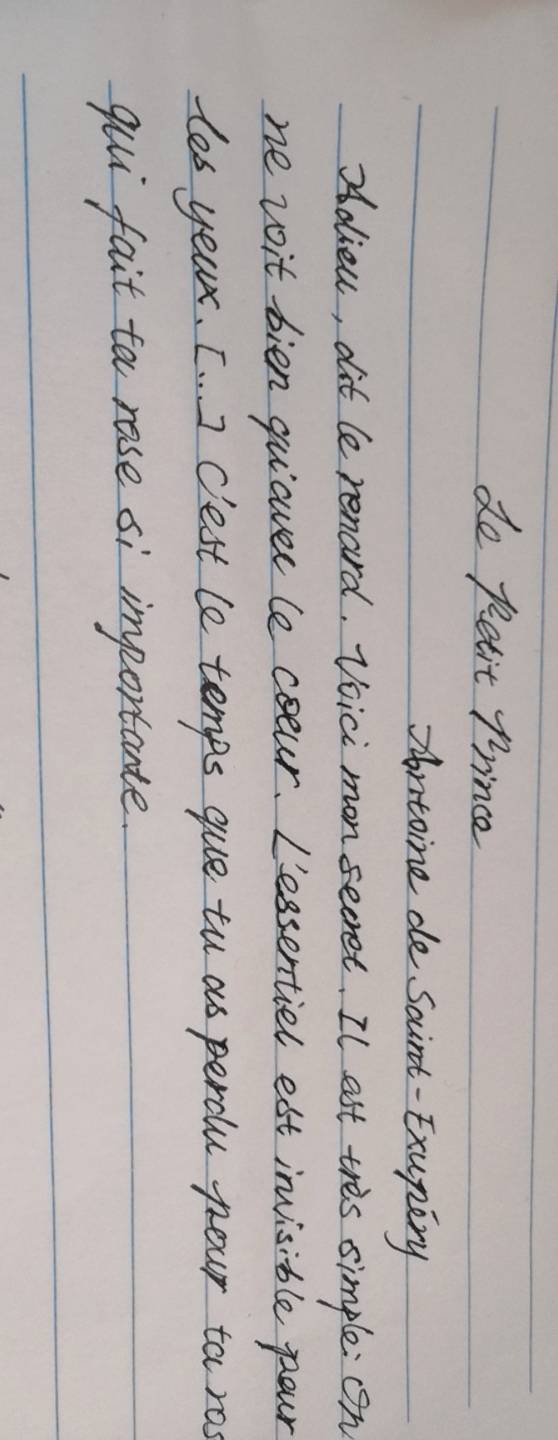 Le Petit Prince
Antoine de Saint-Exupéry
Adieu, dit le renard. Voici mon secret. Il est très simple: On
ne voit bien qu'avec le coeur. L'essentiel est invisible pour
les yeux. [...] C'est le temps que tu as perdu pour ta ros
qui fait ta rose si importante.